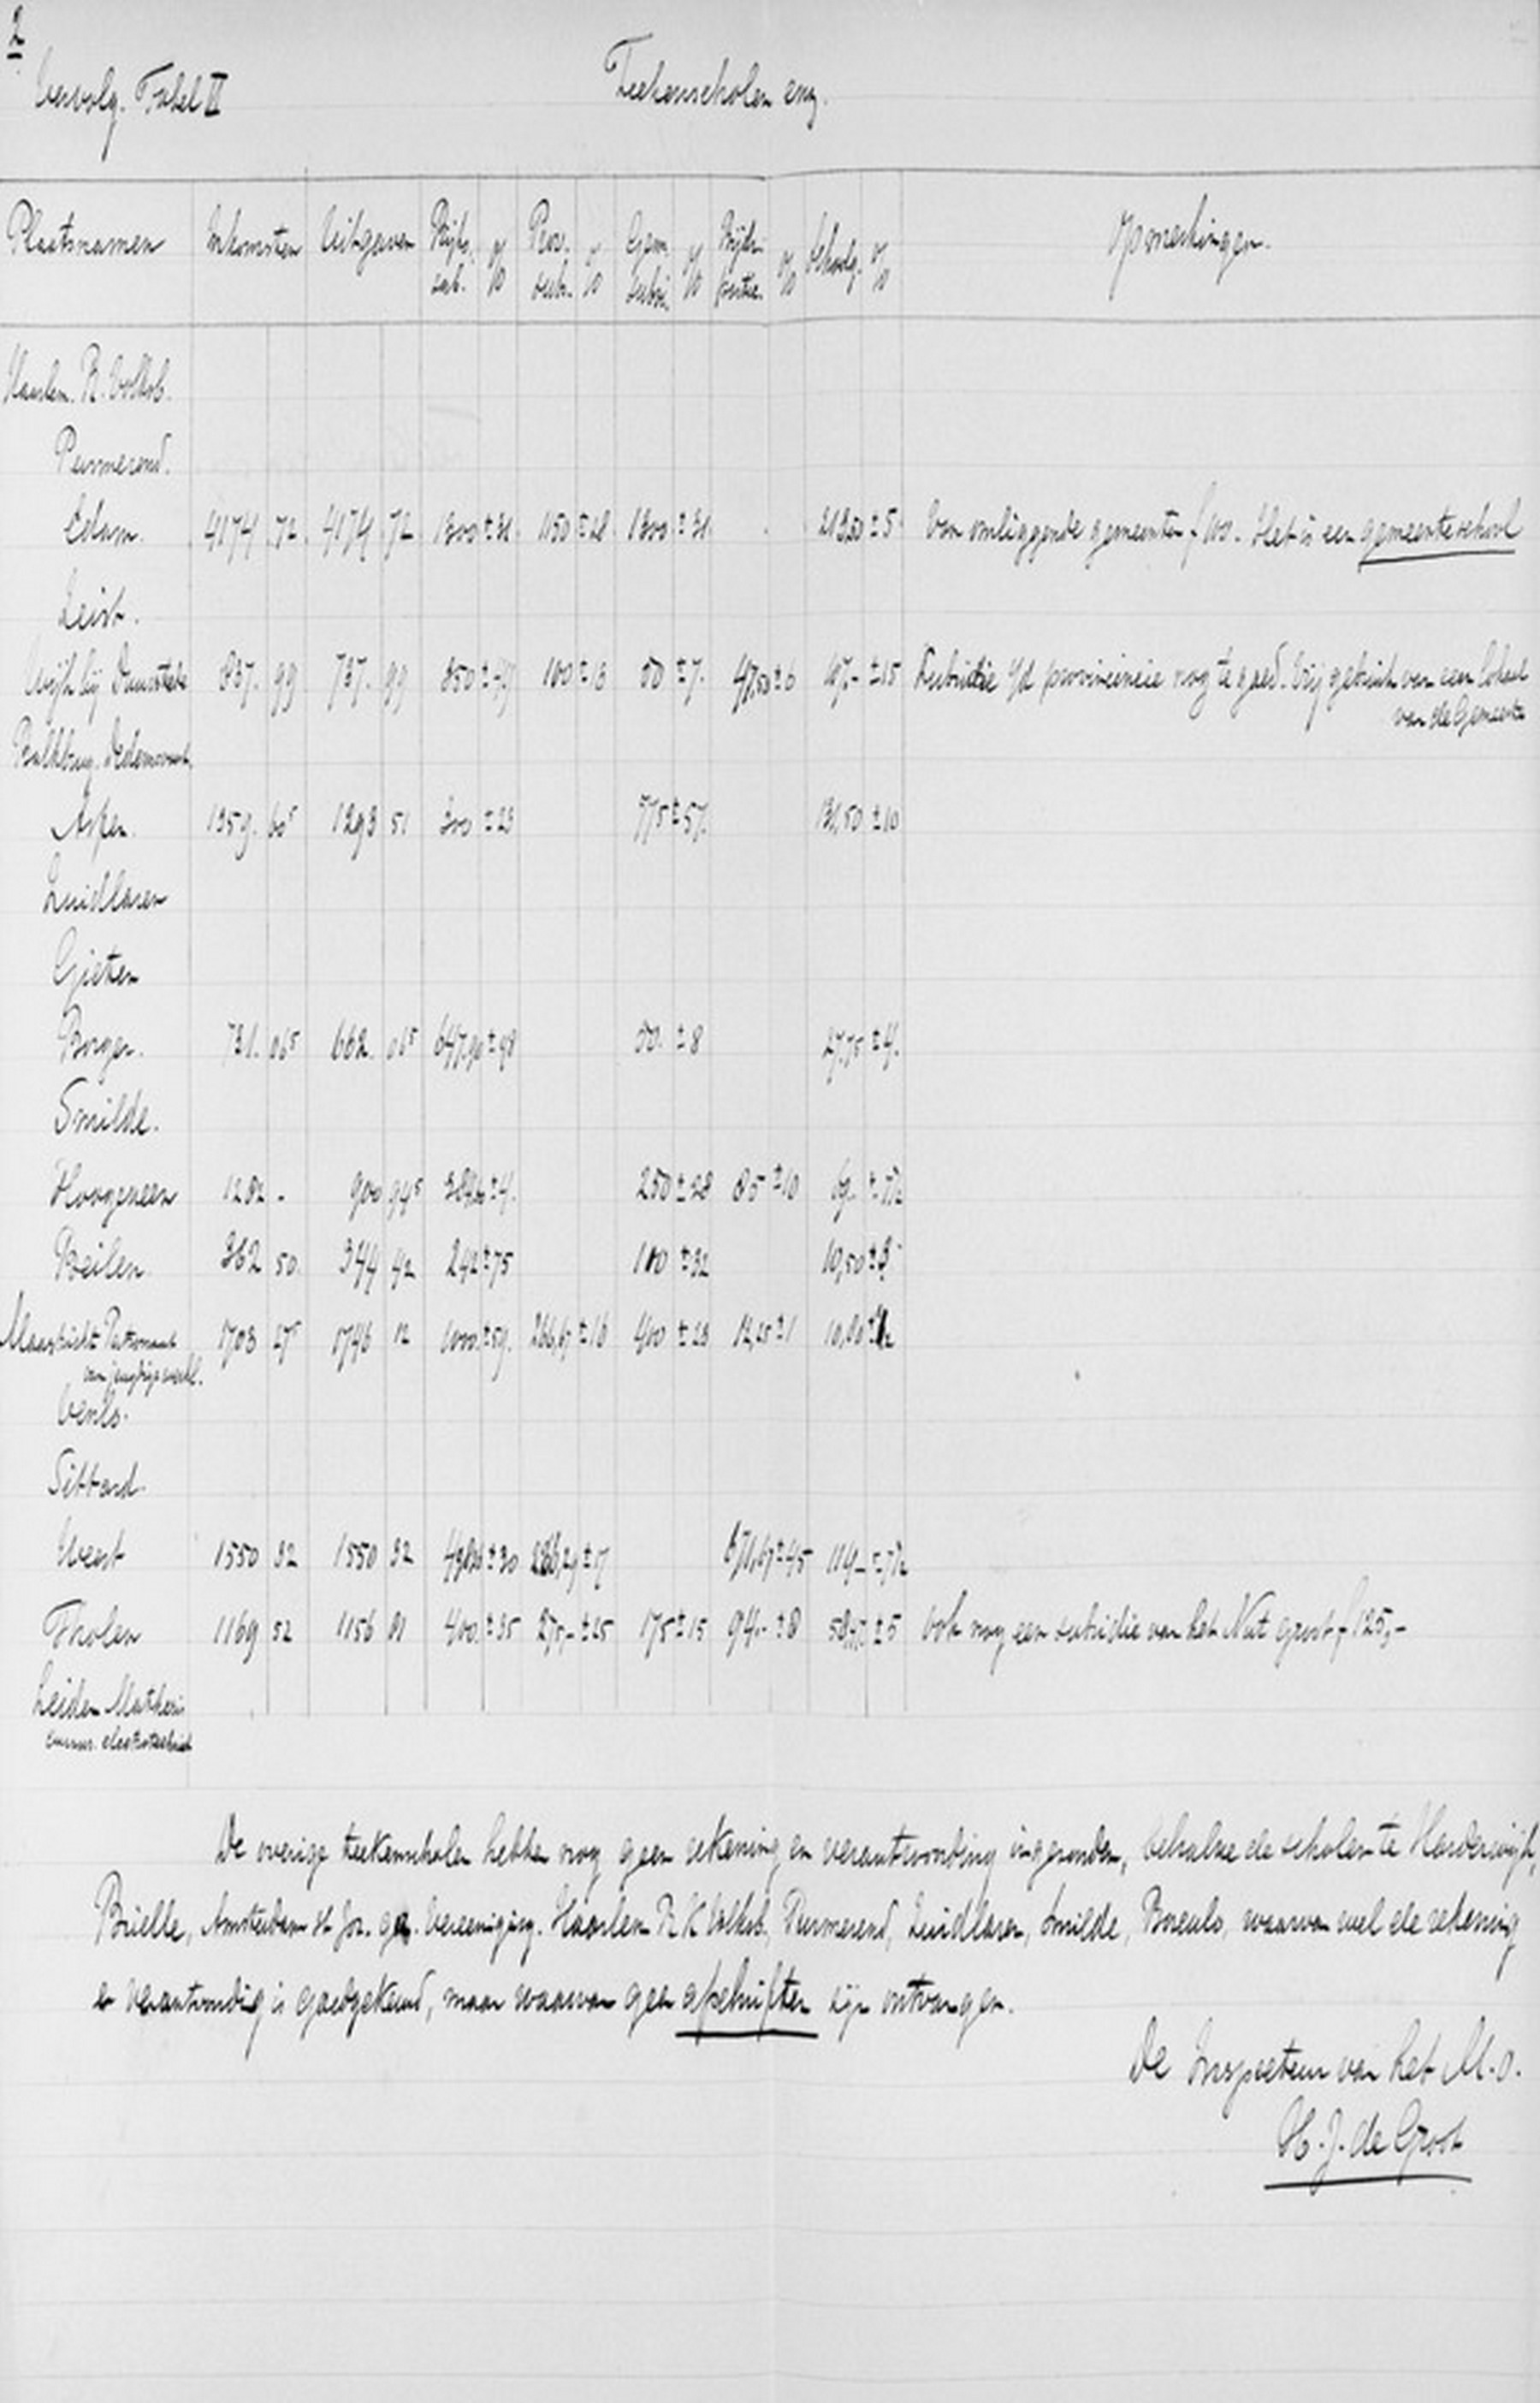 2
Vervolg. Tabel II
Teekenscholen enz.
Plaatsnamen Inkomsten Uitgaven Rijks sub. % Prov. sub. % Gem. subsi. % Bijdr. % Schoolg. % Opmerkingen.
Haarlem. R. Volksb.
Purmerend.
Edam. 4174 72 4174 72 1300 ±31 1150 ±28 1300 ±31 213,50 ±5 Van omliggende gemeenten f 100. Het is een gemeenteschool
Zeist.
Wijk bij Duurstede 837. 99 737. 99 350 ±47 100 ±13 50 ±7. 47,50 ±6 107,- ±15 Subsidie v/d provincie nog te goed. Vrij gebruik van een lokaal
van de Gemeente
Balkbrug. Dedemsvaart.
Assen. 1359. 60⁵ 1293 51 300 ±23 775 ±57. 131,50 ±10
Zuidlaren
Gieten
Borger. 731. 06⁵ 662. 06⁵ 647,90 ±98 50. ±8 27,75 ±4.
Smilde.
Hoogeveen 1282 - 900 94⁵ 250 ±28 85 ±10 69.- ±7½
Beilen. 362 50. 344 42 242 ±75 110 ±32 10,50 ±3
Maastricht Patronaat 1703 27⁵ 1746 12 1000 ±59. 266,67 ±16 400 ±23 12,25 ±1 10,80 ±½
van jeugdige werkl.
Venlo.
Sittard.
Weert 1550 32 1550 32 ±30 ±17 671,67 ±45 114,- ±7½
Tholen 1169 52 1156 81 400. ±35 275,- ±25 175 ±15 94.- ±8 ±5 Ook nog een subsidie van het Nut groot f 125,-
Leiden Mathesis
cursus. electrotechniek
De overige teekenscholen hebben nog geen rekening en verantwoording ingezonden, behalve de scholen te Harderwijk,
Brielle, Amsterdam St Joz. gez. Vereeniging. Haarlem R K Volksb., Purmerend, Zuidlaren, Smilde, Borculo, waarvan wel de rekening
en verantwoording is goedgekeurd, maar waarvan geen afschriften zijn ontvangen.
De Inspecteur van het M.O.
H. J. de Groot